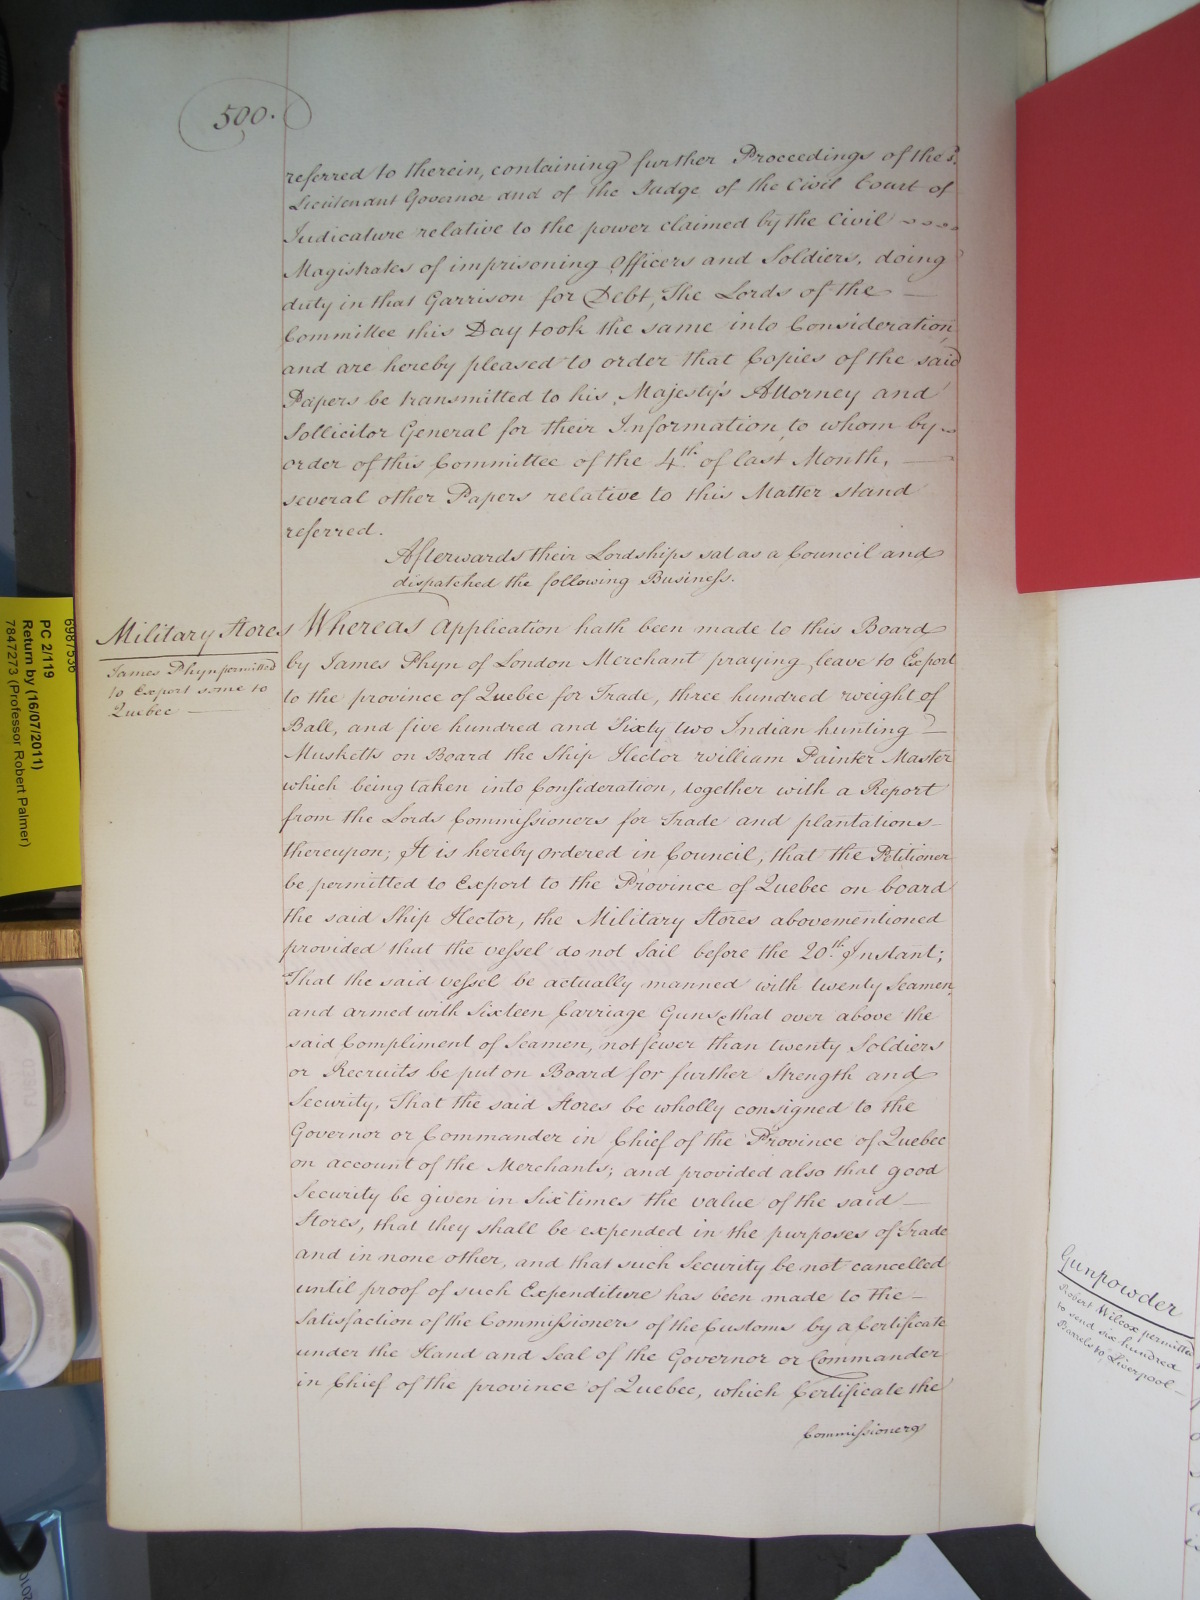 500.
referred to therein, containing further Proceedings of the sd.
Lieutenant Governor and of the Judge of the Civil Court of
Judicature relative to the power claimed by the Civil
Magistrates of imprisoning Officers and Soldiers, doing
duty in that Garrison for Debt, The Lords of the
Committee this Day took the same into Consideration,
and are hereby pleased to order that Copies of the said
Papers be transmitted to his Majesty's Attorney and
Sollicitor General for their Information, to whom by
order of this Committee of the 4th. of last Month,
several other Papers relative to this Matter stand
referred.
Afterwards their Lordships sat as a Council and
dispatched the following Business.
Military Stores
James Phyn permitted
to Export some to
Quebec
Whereas Application hath been made to this Board
by James Phyn of London Merchant praying leave to Export
to the province of Quebec for Trade, three hundred weight of
Ball, and five hundred and Sixty two Indian hunting
Musketts on Board the Ship Hector William Painter Master
which being taken into Consideration, together with a Report
from the Lords Commissioners for Trade and plantations
thereupon; It is hereby ordered in Council, that the Petitioner
be permitted to Export to the Province of Quebec on board
the said Ship Hector, the Military Stores abovementioned
provided that the vessel do not Sail before the 20th. Instant;
That the said vessel be actually manned with twenty Seamen,
and armed with Sixteen Carriage Guns, that over above the
said Compliment of Seamen, not fewer than twenty Soldiers
or Recruits be put on Board for further Strength and
Security, That the said Stores be wholly consigned to the
Governor or Commander in Chief of the Province of Quebec
on account of the Merchants; and provided also that good
Security be given in Six times the value of the said
Stores, that they shall be expended in the purposes of Trade
and in none other, and that such Security be not cancelled
until proof of such Expenditure has been made to the
Satisfaction of the Commissioners of the Customs by a Certificate
under the Hand and Seal of the Governor or Commander
in Chief of the province of Quebec, which Certificate the
Commissioners
Gunpowder
Robert Wilcox permitted
to send six hundred
Barrels to Liverpool
698/7538
PC 2/119
Return by (16/07/2011)
7847273 (Professor Robert Palmer)